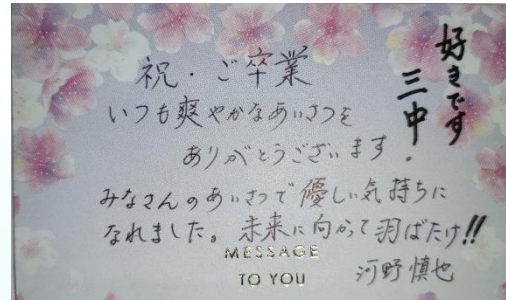 好きです
三中.
祝・ご卒業
いつも爽やかなあいさつを
ありがとうございます.
みなさんのあいさつで優しい気持ちに
なれました。未来に向かって羽ばたけ!!
MESSAGE
TO YOU
河野慎也